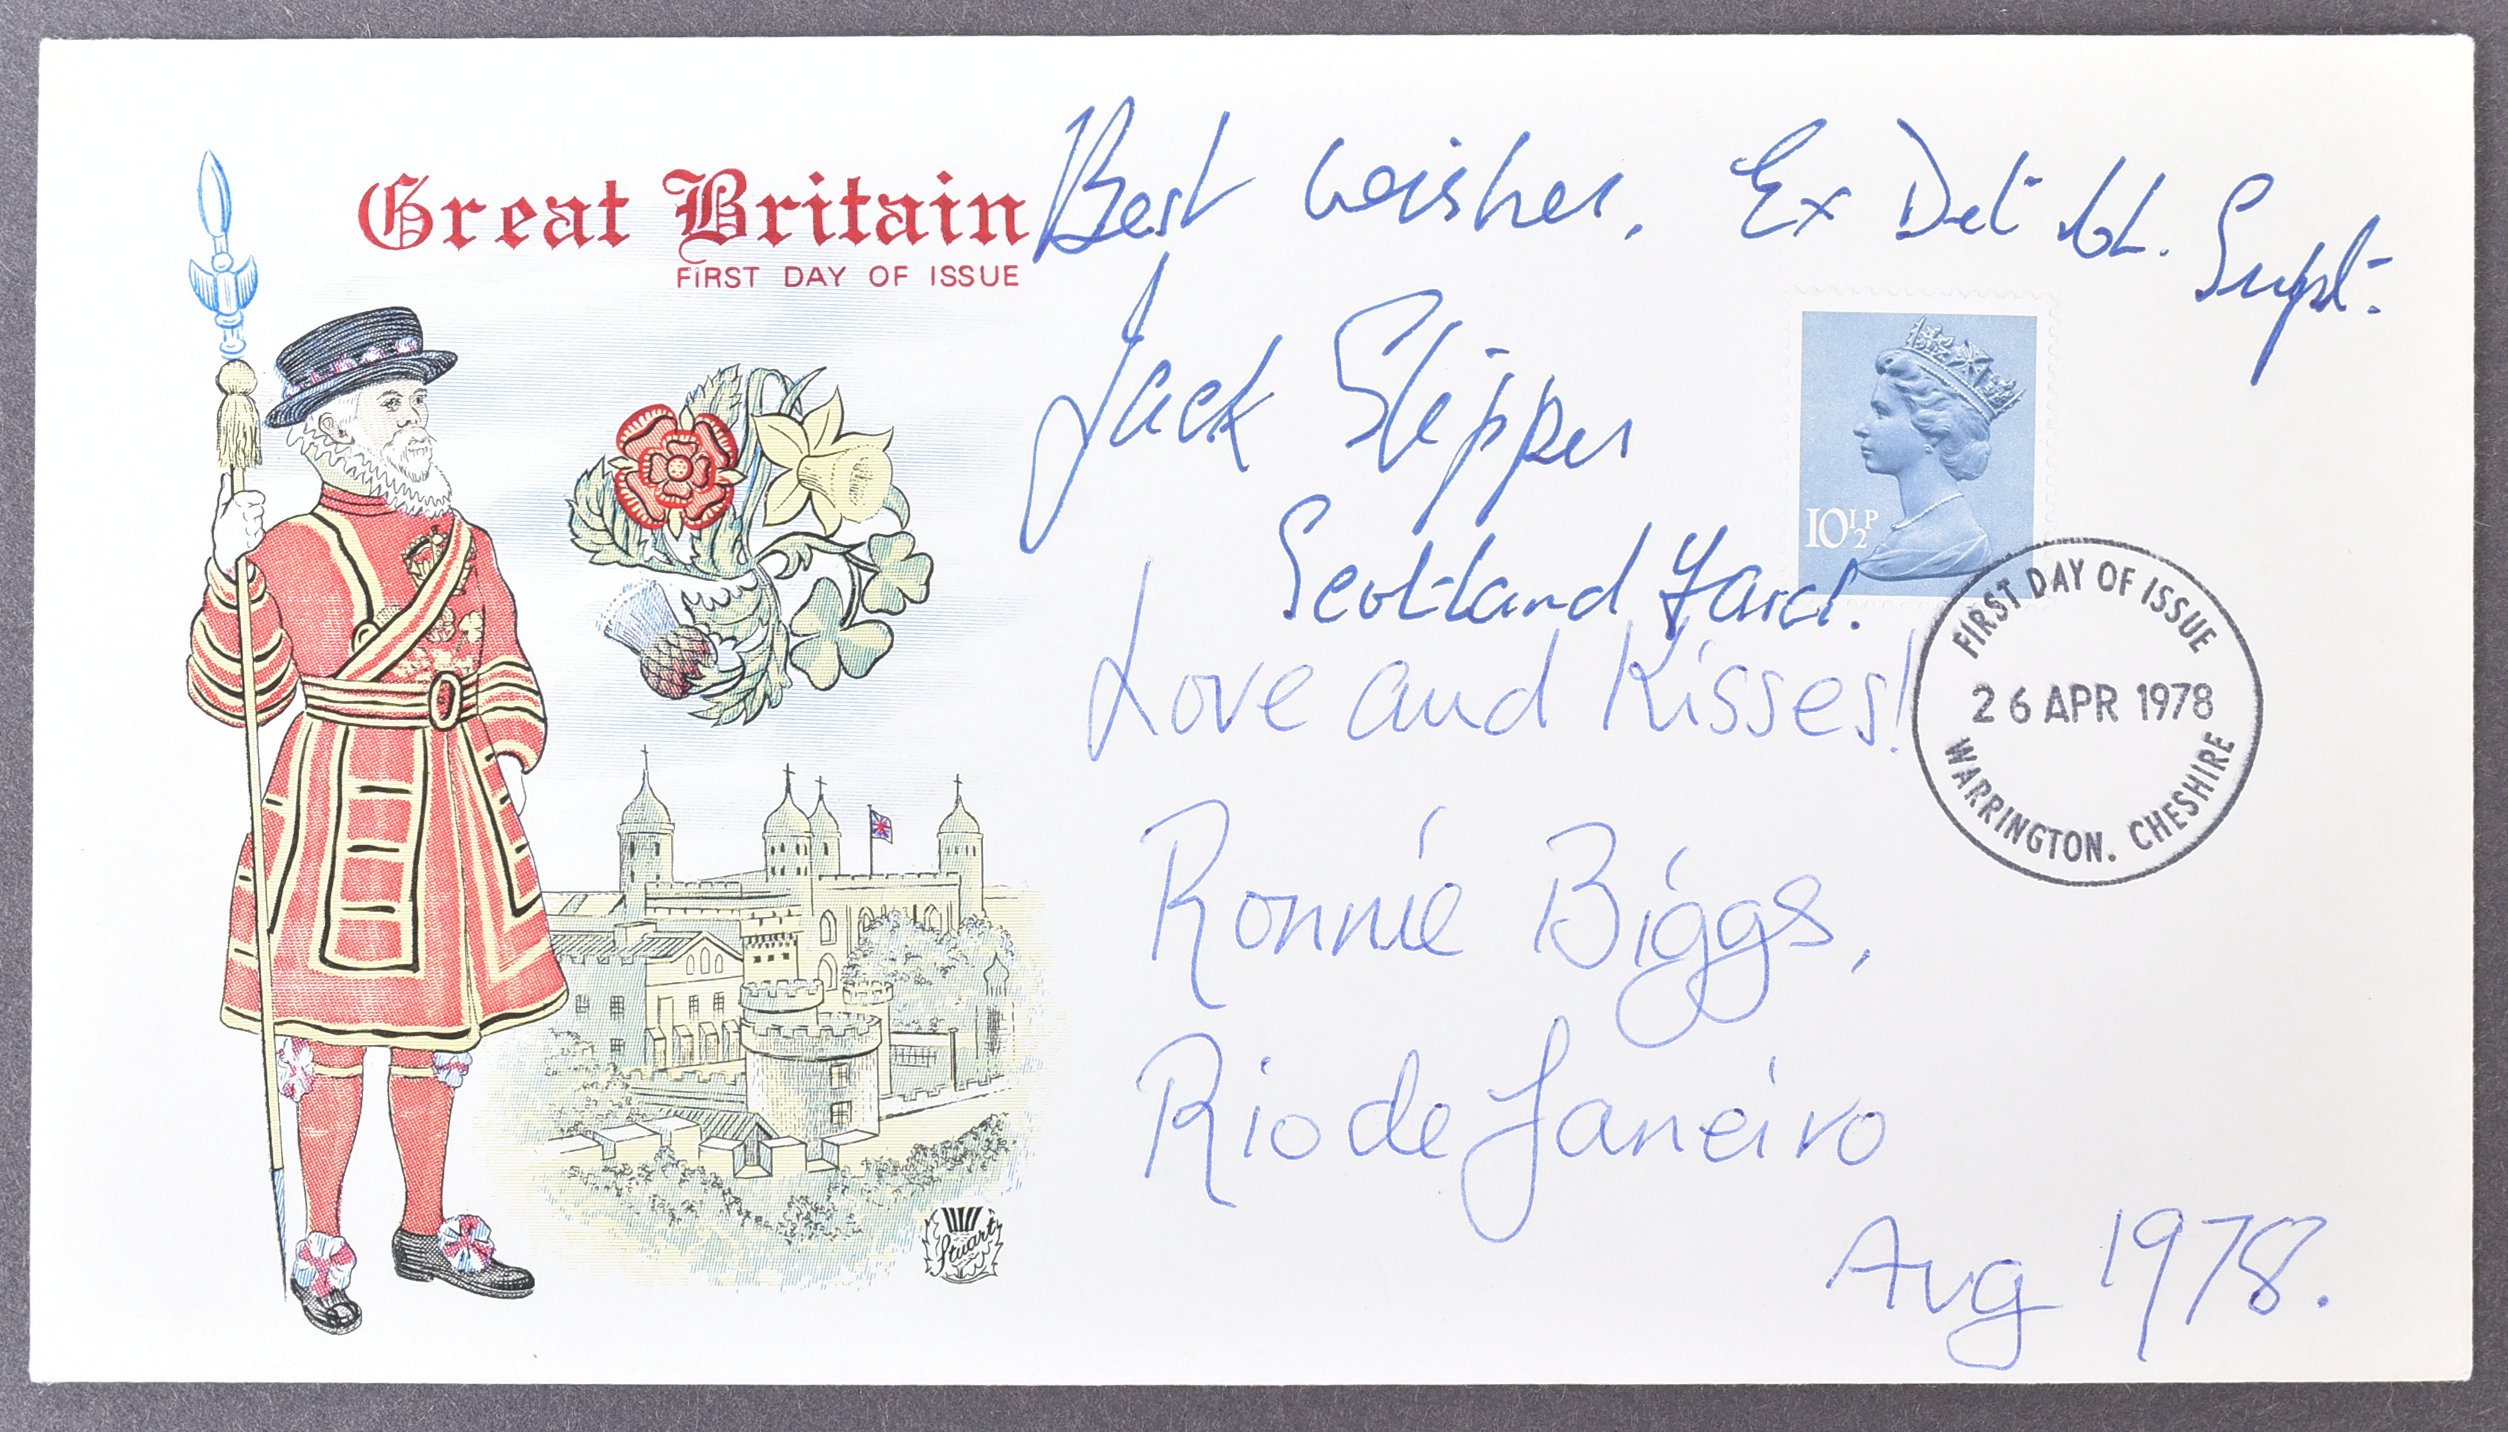 Great Britain
FIRST DAY OF ISSUE
Best Wishes. Ex Det Ch. Supt.
Jack Slipper
Scotland Yard.
10½P
Love and Kisses!
Ronnie Biggs,
Rio de Janeiro
Aug 1978.
FIRST DAY OF ISSUE
26 APR 1978
WARRINGTON. CHESHIRE
Stuart